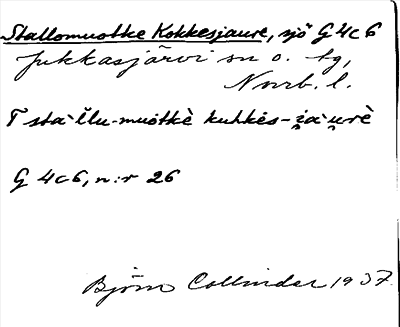 Stallomuotke Kokkesjaure, sjö G 4c6
Jukkasjärvi sn o. tg,
Norrb. l.
T sta·l̆lu-muŏtkè kuhkès-i̯a·u̯rè
G 4c6, n:r 26
Björn Collinder 1937.